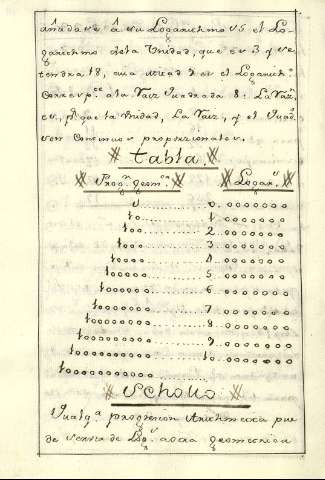 añadase â su Logarithmo 15 el Lo-
garithmo de la Unidad, que es 3 y se
tendra 18, cuia mitad 9 es el Logarith.º
Corresp.te a la Raiz Quadrada 8. La raz.n
es, p.r que la Unidad, La Raiz, y el Quad.º
son continuos proporzionales.
Tabla
Prog.n geom.ca Logar.s
1 ........ 0. 0000000
10 ........ 1. 0000000
100 ........ 2. 0000000
1000 ........ 3. 0000000
10000 ........ 4. 0000000
100000 ........ 5. 0000000
1000000 ........ 6. 0000000
10000000 ........ 7. 0000000
100000000 ........ 8. 0000000
1000000000 ........ 9. 0000000
10000000000 ........ 10. 0000000
100000000000 ........
Scholio
qualq.a progresion Arithmetica pue
de servir de Log.s a otra geometrica